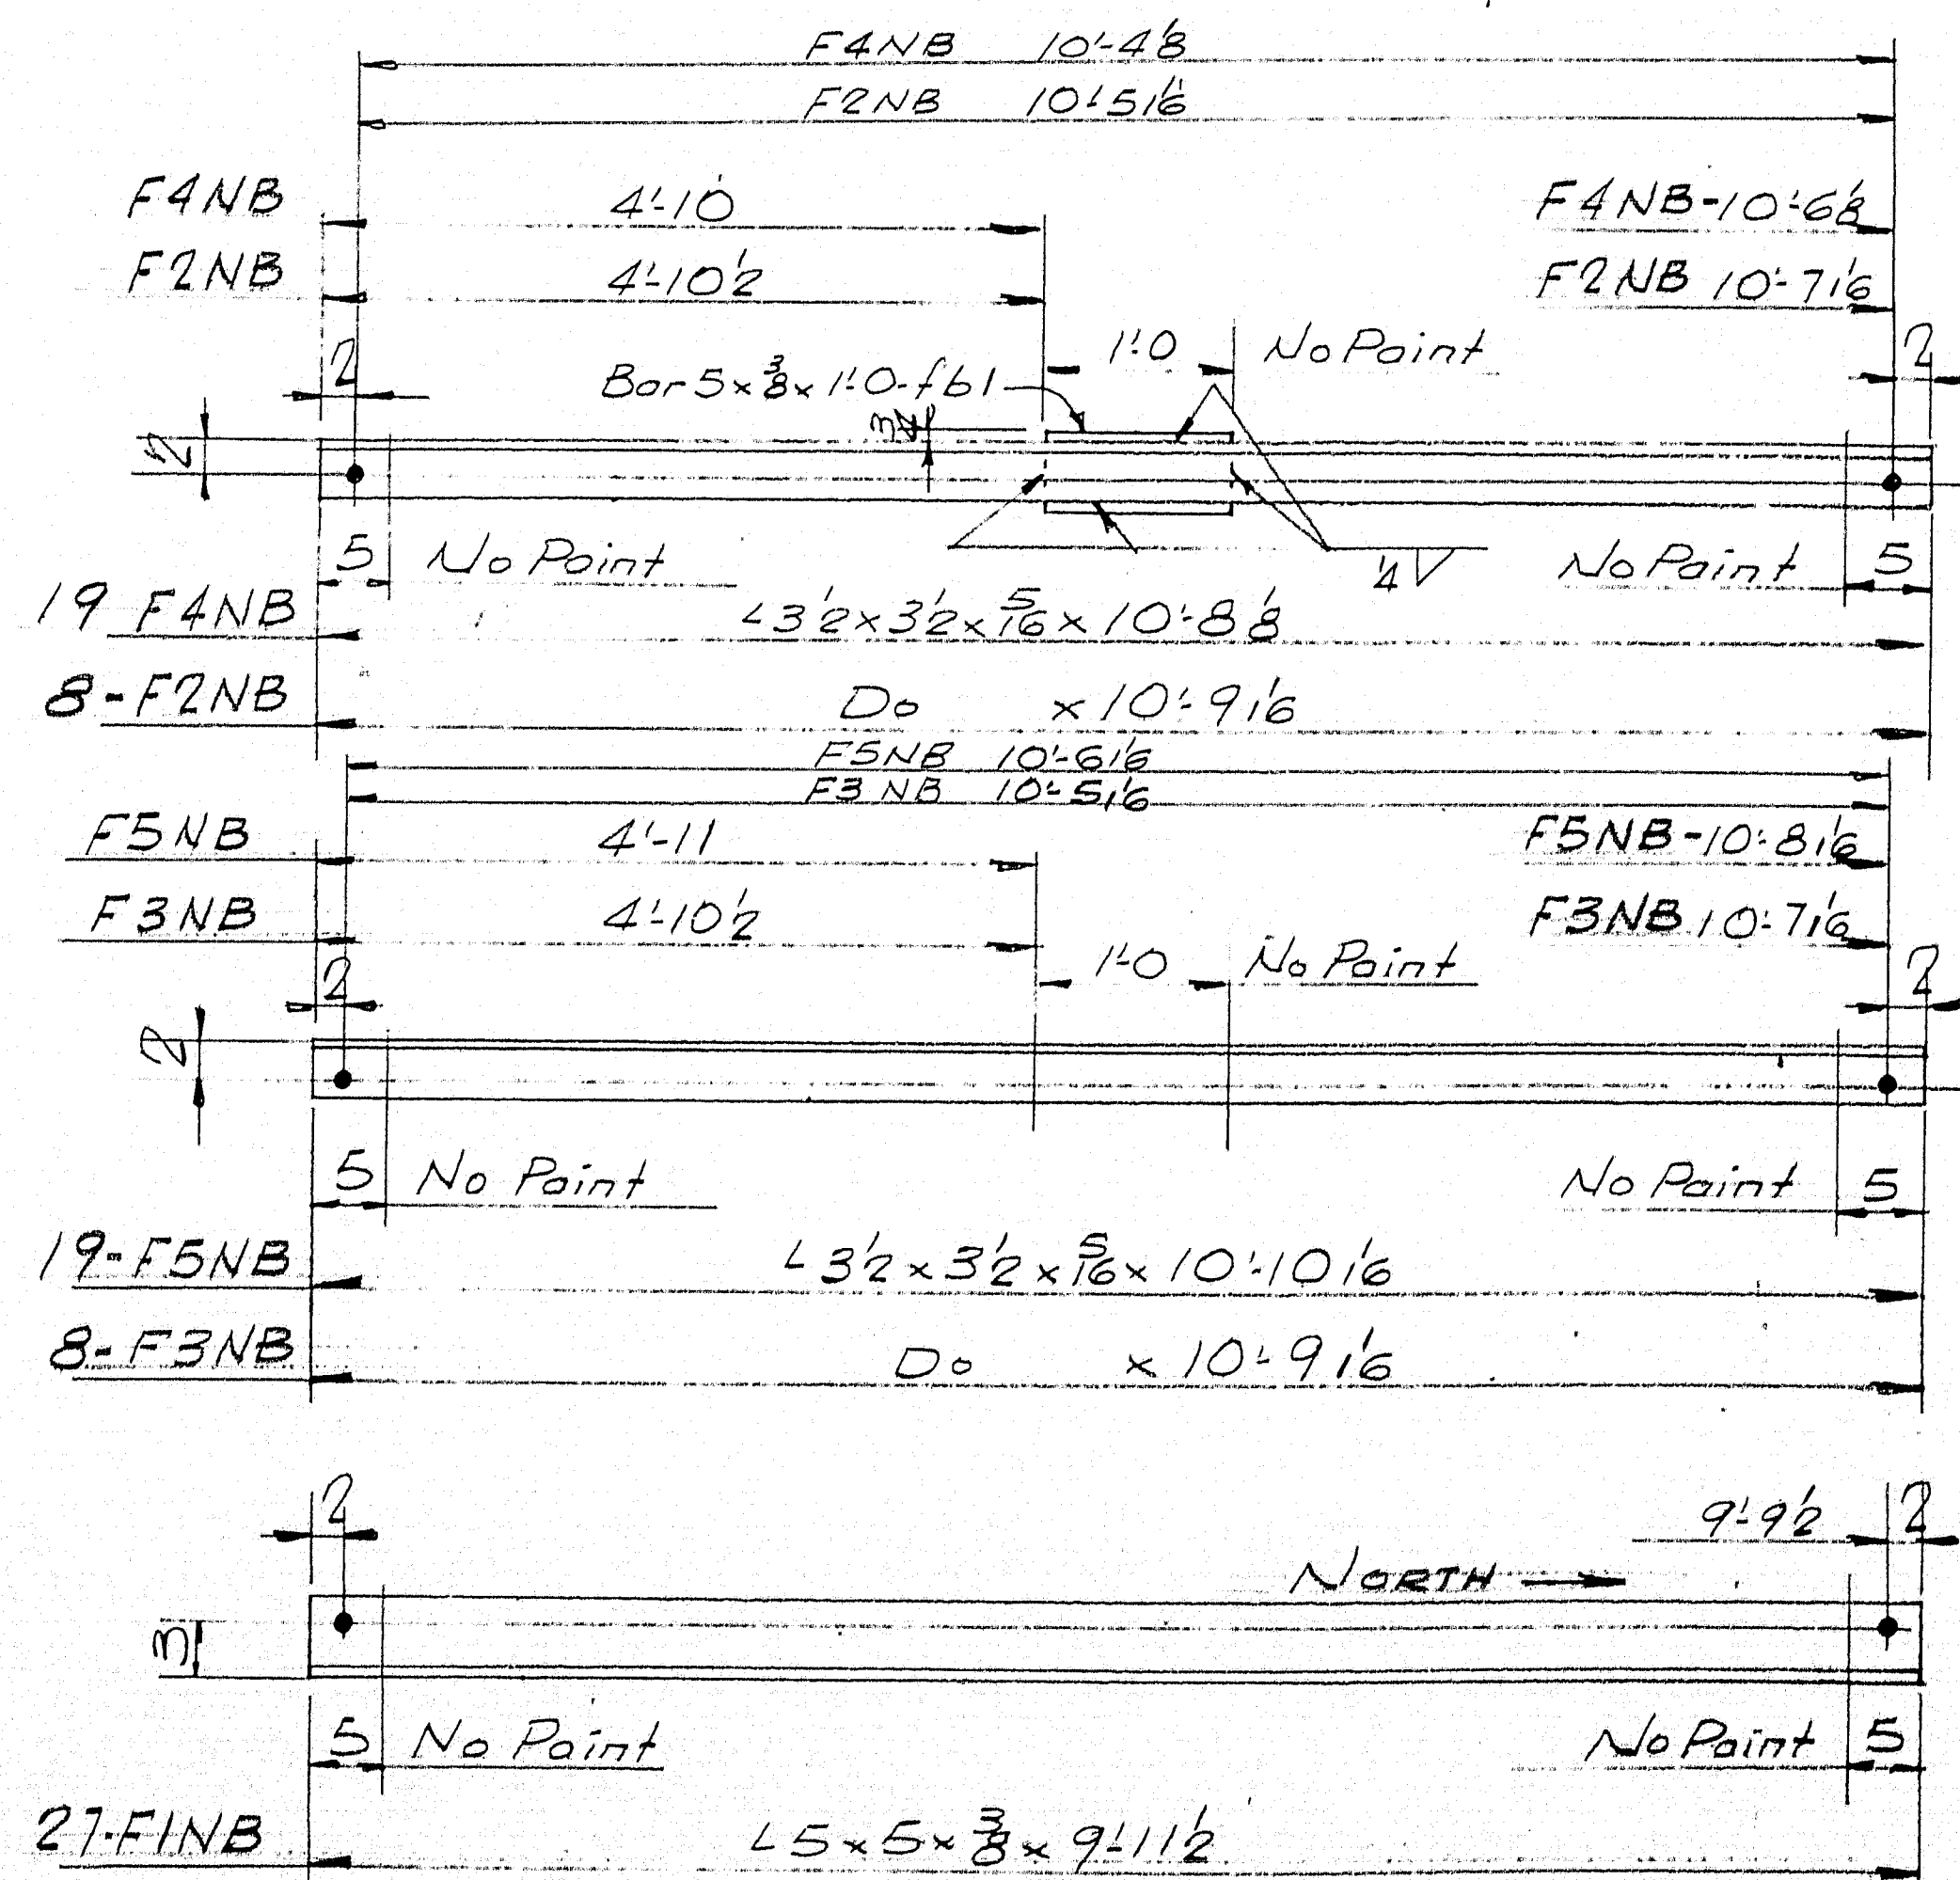 F4NB 10'-4 1/8
F2NB 10'-5 1/16
F4NB 4'-10 F4NB-10'-6 1/8
F2NB 4'-10 1/2 F2NB 10'-7 1/16
2 Bar 5 x 3/8 x 1'-0-fb1 1'-0 No Paint 2
2 3/4
5 No Paint 1/4 No Paint 5
19 F4NB L3 1/2 x 3 1/2 x 5/16 x 10'-8 1/8
8-F2NB Do x 10'-9 1/16
F5NB 10'-6 1/16
F3NB 10'-5 1/16
F5NB 4'-11 F5NB-10'-8 1/16
F3NB 4'-10 1/2 F3NB 10'-7 1/16
2 1'-0 No Paint 2
2
5 No Paint No Paint 5
19-F5NB L 3 1/2 x 3 1/2 x 5/16 x 10'-10 1/16
8-F3NB Do x 10'-9 1/16
2 9'-9 1/2 2
NORTH
3
5 No Paint No Paint 5
27-F1NB L5 x 5 x 3/8 x 9'-11 1/2